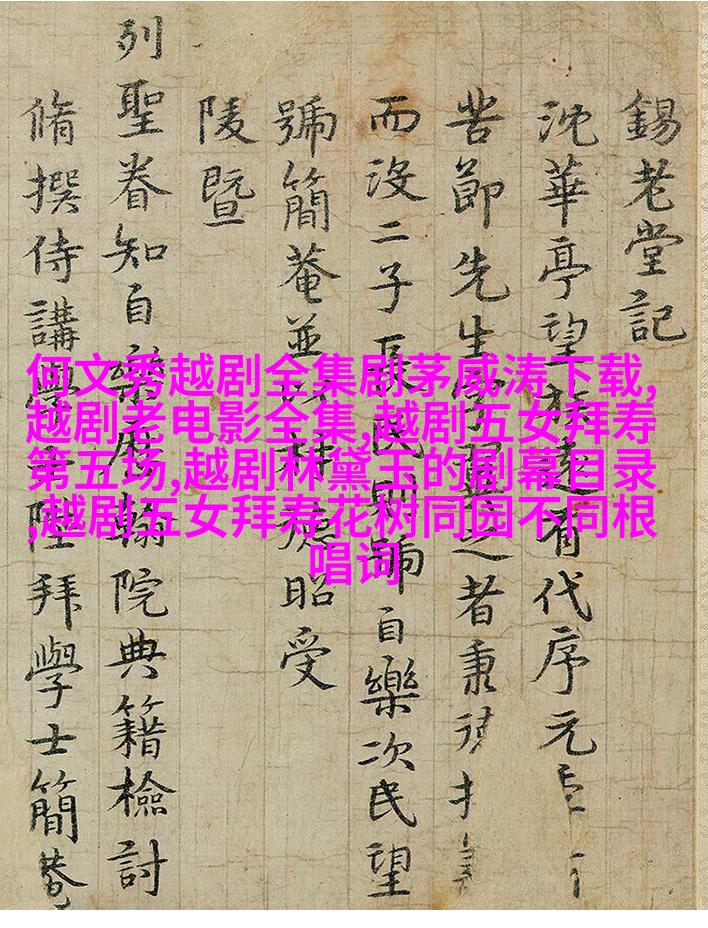 錫老堂記
沈華亭望族遠有代序元
苦節先生之者秉
而沒二子長民則號自樂次民望
號簡菴並以材德昭受
陵暨
列聖眷知自樂居翰院典籍檢討
脩撰侍講學士陞拜學士簡菴
何文秀越剧全集剧茅威涛下载,
越剧老电影全集,越剧五女拜寿
第五场,越剧林黛玉的剧幕目录
,越剧五女拜寿花树同园不同根
唱词